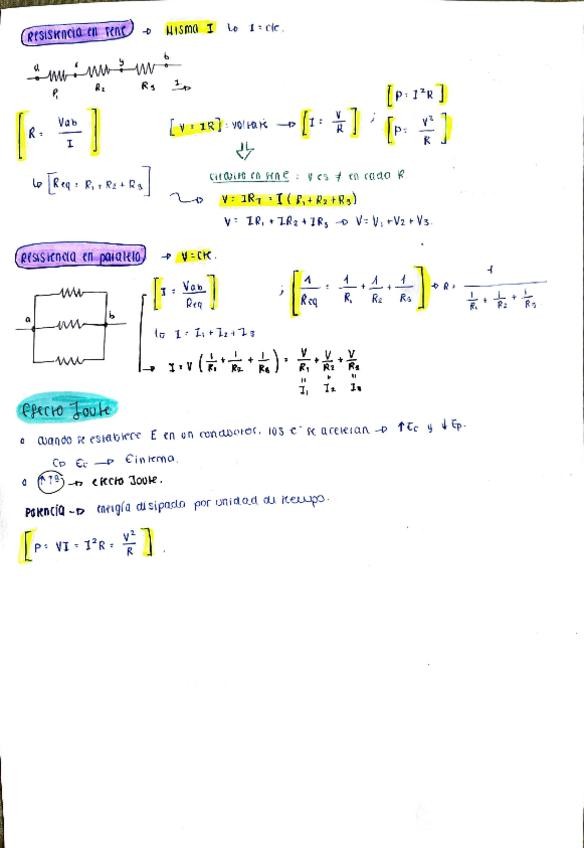 Resistencia en serie → Misma I ↳ I = cte.
a x y b
R₁ R₂ R₃ I →
[P = I²R]
[R = Vab/I] [V = IR] : voltaje → [I = V/R] ; [P = V²/R]
↳ [Req = R₁ + R₂ + R₃] circuito en serie : V es ≠ en cada R
→ V = IR_T = I (R₁ + R₂ + R₃)
V = IR₁ + IR₂ + IR₃ → V = V₁ + V₂ + V₃
Resistencia en paralelo → V = cte.
[I = Vab/Req] ; [1/Req = 1/R₁ + 1/R₂ + 1/R₃] → R = 1/(1/R₁ + 1/R₂ + 1/R₃)
a b
↳ I = I₁ + I₂ + I₃
→ I = V (1/R₁ + 1/R₂ + 1/R₃) = V/R₁ + V/R₂ + V/R₃
" " "
I₁ I₂ I₃
Efecto Joule
• Cuando se establece E en un conductor, los e⁻ se aceleran → ↑Ec y ↓Ep.
Ec → Einterna.
• ↑Tª → efecto Joule.
Potencia → energía disipada por unidad de tiempo.
[P = VI = I²R = V²/R].